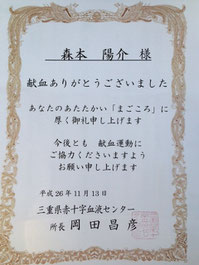 森本 陽介 様
献血ありがとうございました
あなたのあたたかい「まごころ」に
厚く御礼申し上げます
今後とも 献血運動に
ご協力くださいますよう
お願い申し上げます
平成26年11月13日
三重県赤十字血液センター
所長 岡田昌彦